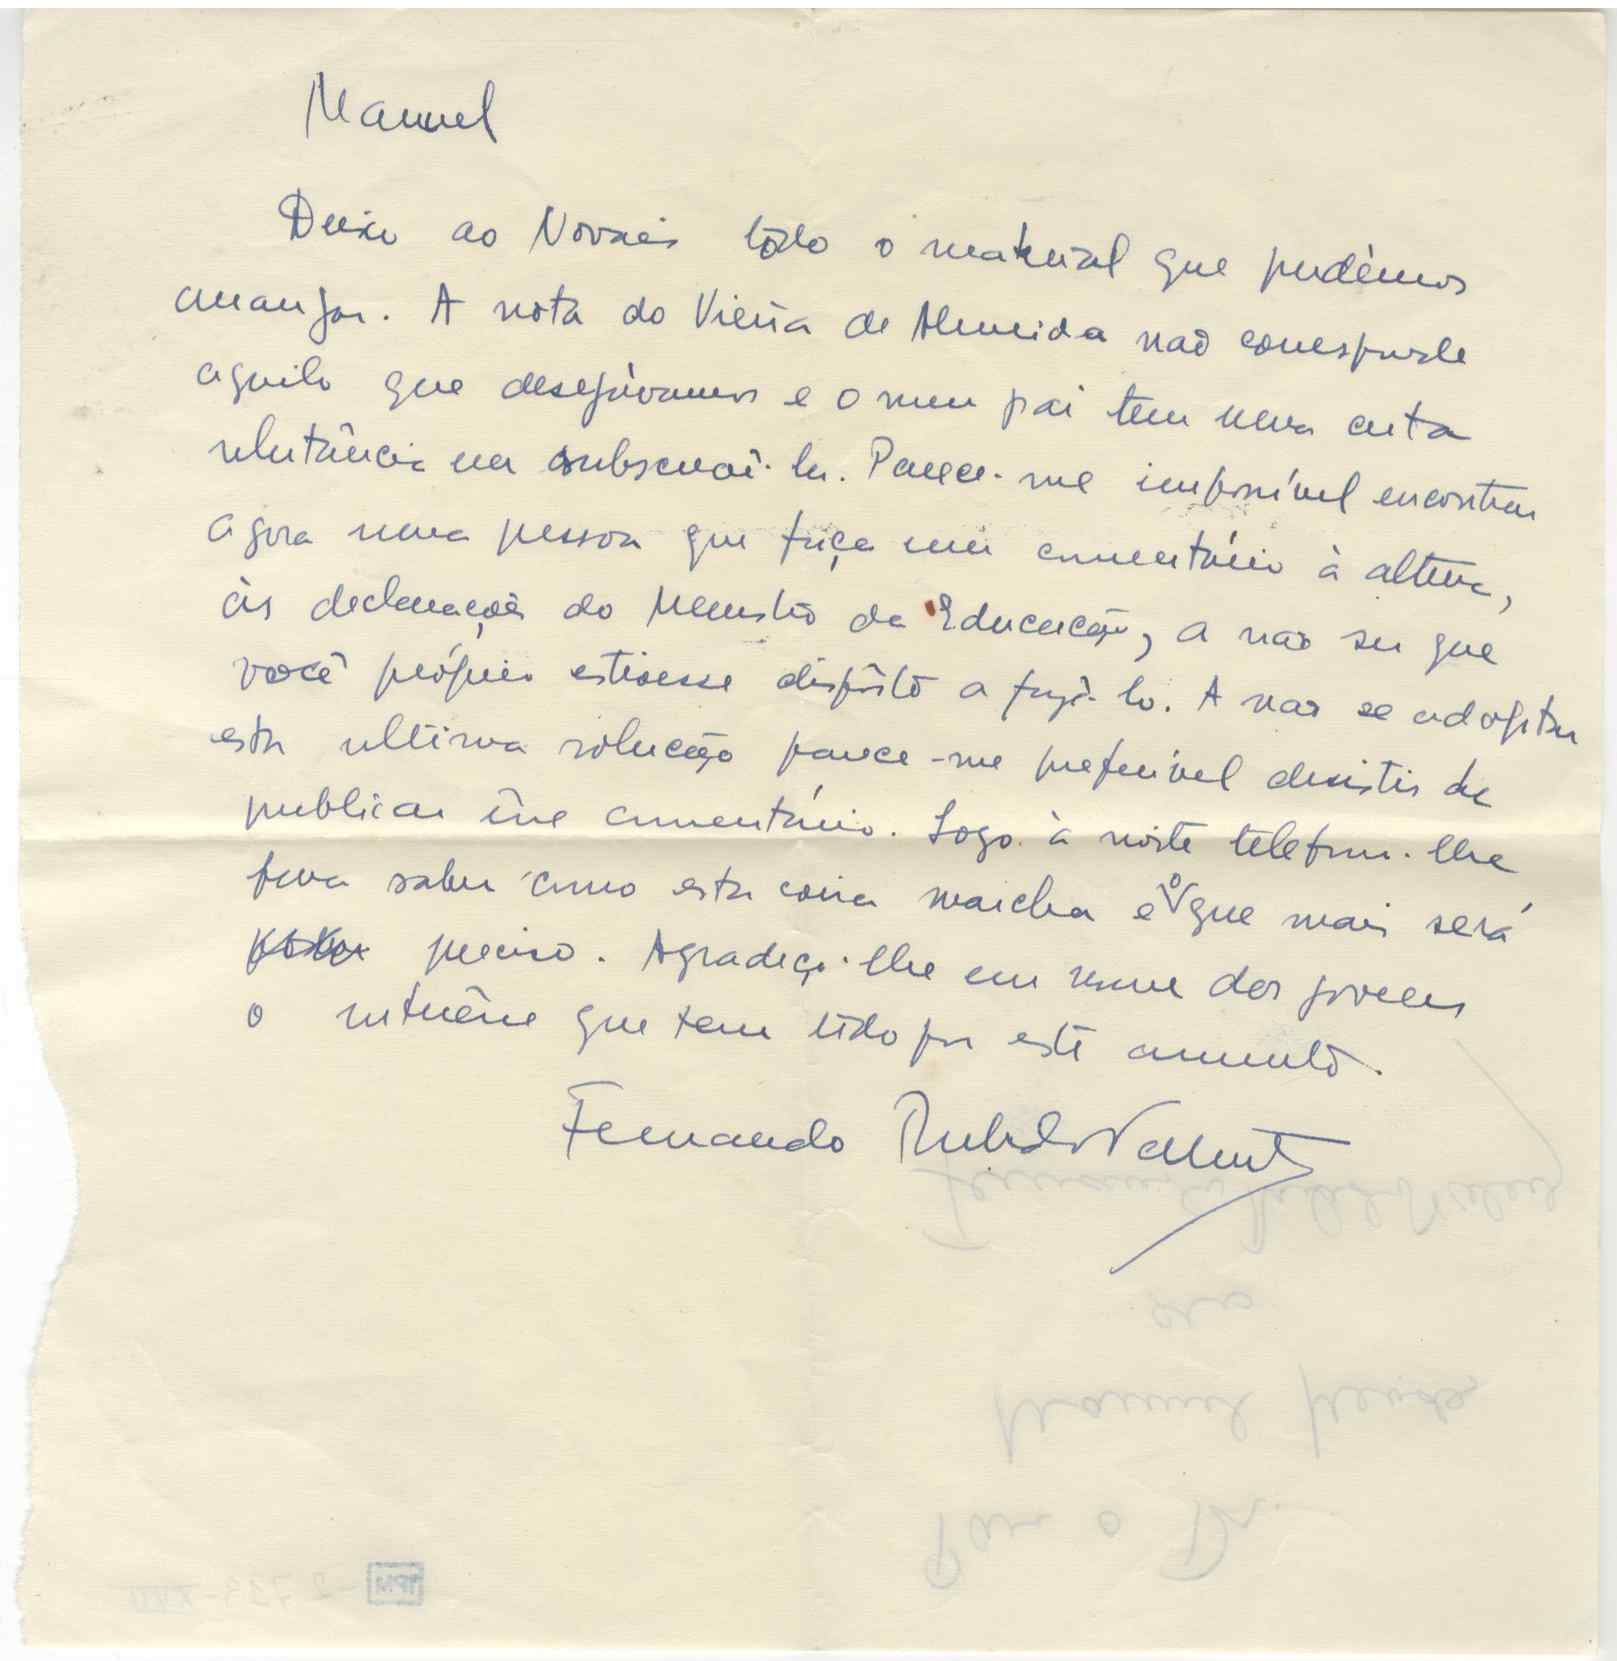 Manuel
Deixo ao Novais todo o material que pudémos
arranjar. A nota do Vieira de Almeida não corresponde
aquilo que desejávamos e o meu pai tem uma certa
relutância em subscrevê-la. Parece-me impossível encontrar
agora uma pessoa que faça um comentário à altura,
às declarações do Ministro da Educação, a não ser que
você próprio estivesse disposto a fazê-lo. A não se adoptar
esta ultima solução parece-me preferível desistir de
publicar êsse comentário. Logo à noite telefono-lhe
para saber como esta coisa marcha e o que mais será
preciso. Agradeço-lhe em nome dos jovens
o interêsse que tem tido por este assunto.
Fernando Rubaldo Valente
Para o Dr.
Manuel Mendes
do
Fernando